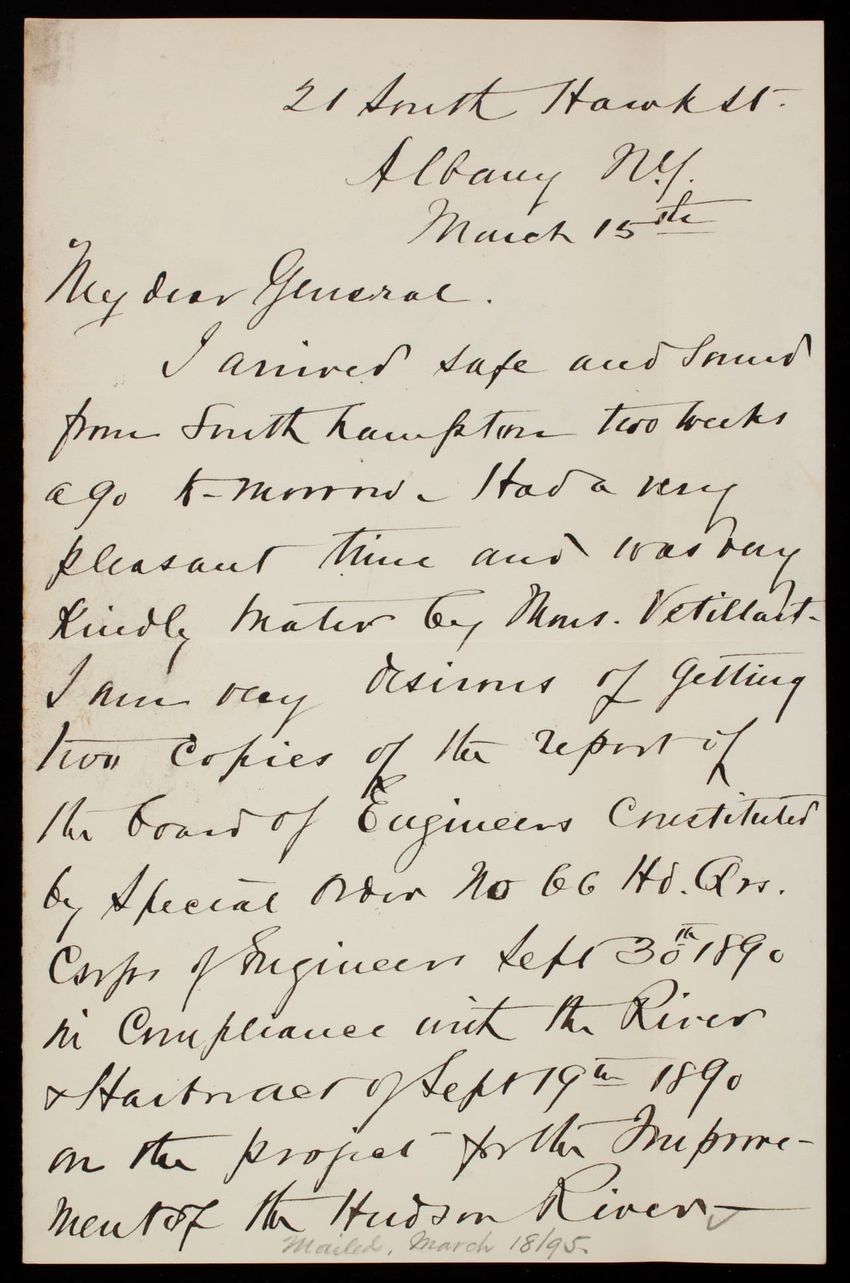 21 South Hawk St.
Albany N.Y.
March 15th
My dear General.
I arrived safe and sound
from Southhampton two weeks
ago to-morrow - Had a very
pleasant time and was very
kindly treated by Mons. Vetillart -
I am very desirous of getting
two copies of the report of
the board of Engineers Constituted
by Special Order No 66 Hd. Qrs.
Corps of Engineers Sept 30th 1890
in Compliance with the River
& Harbor act of Sept 19th 1890
on the project for the Improve-
ment of the Hudson River -
Mailed, March 18/95.